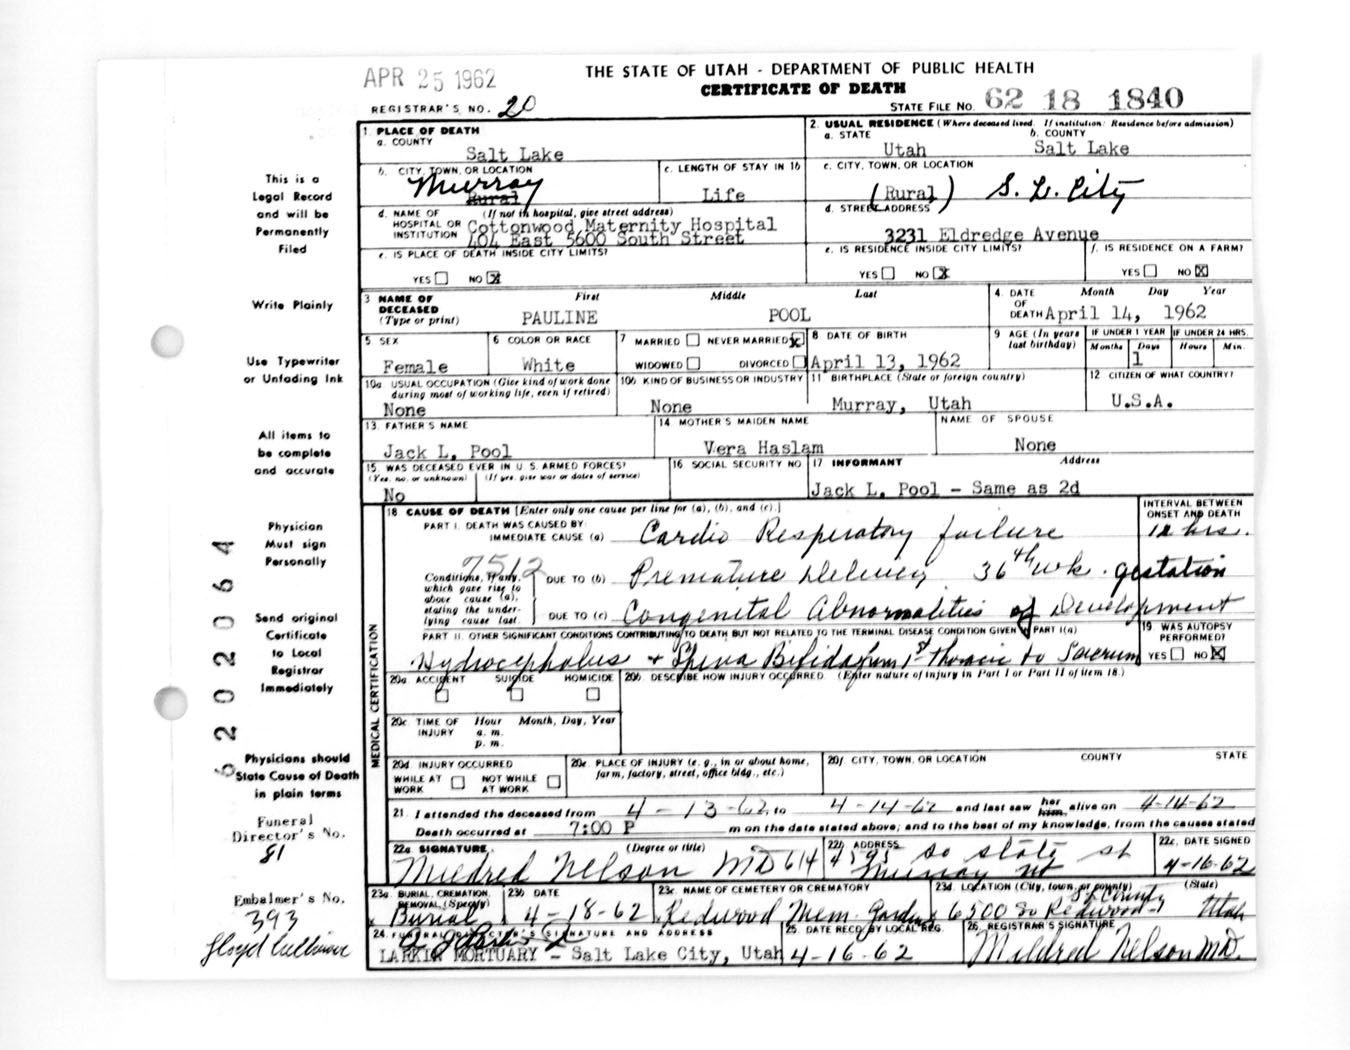 APR 25 1962
THE STATE OF UTAH - DEPARTMENT OF PUBLIC HEALTH
CERTIFICATE OF DEATH
REGISTRAR'S NO. 20
STATE FILE NO. 62 18 1840
This is a
Legal Record
and will be
Permanently
Filed
Write Plainly
Use Typewriter
or Unfading Ink
All items to
be complete
and accurate
Physician
Must sign
Personally
Send original
Certificate
to Local
Registrar
Immediately
Physicians should
State Cause of Death
in plain terms
Funeral
Director's No.
81
Embalmer's No.
393
62020064
1. PLACE OF DEATH
a. COUNTY
Salt Lake
2. USUAL RESIDENCE (Where deceased lived. If institution: Residence before admission)
a. STATE b. COUNTY
Utah Salt Lake
b. CITY, TOWN, OR LOCATION
Murray
Rural
c. LENGTH OF STAY IN 1b
Life
c. CITY, TOWN, OR LOCATION
(Rural) S. L. City
d. NAME OF (If not in hospital, give street address)
HOSPITAL OR
INSTITUTION
Cottonwood Maternity Hospital
404 East 5600 South Street
d. STREET ADDRESS
3231 Eldredge Avenue
e. IS PLACE OF DEATH INSIDE CITY LIMITS?
YES NO X
e. IS RESIDENCE INSIDE CITY LIMITS?
YES NO X
f. IS RESIDENCE ON A FARM?
YES NO X
3 NAME OF DECEASED
(Type or print)
First Middle Last
PAULINE POOL
4. DATE OF DEATH
Month Day Year
April 14, 1962
5 SEX
Female
6 COLOR OR RACE
White
7 MARRIED NEVER MARRIED X
WIDOWED DIVORCED
8 DATE OF BIRTH
April 13, 1962
9 AGE (In years last birthday)
IF UNDER 1 YEAR IF UNDER 24 HRS.
Months Days Hours Min.
1
10a USUAL OCCUPATION (Give kind of work done
during most of working life, even if retired)
None
10b KIND OF BUSINESS OR INDUSTRY
None
11 BIRTHPLACE (State or foreign country)
Murray, Utah
12 CITIZEN OF WHAT COUNTRY?
U.S.A.
13. FATHER'S NAME
Jack L. Pool
14 MOTHER'S MAIDEN NAME
Vera Haslam
NAME OF SPOUSE
None
15. WAS DECEASED EVER IN U.S. ARMED FORCES?
(Yes, no, or unknown) (If yes, give war or dates of service)
No
16 SOCIAL SECURITY NO
17 INFORMANT Address
Jack L. Pool - Same as 2d
MEDICAL CERTIFICATION
18 CAUSE OF DEATH [Enter only one cause per line for (a), (b), and (c).]
INTERVAL BETWEEN
ONSET AND DEATH
PART I. DEATH WAS CAUSED BY:
IMMEDIATE CAUSE (a) Cardio Respiratory failure 12 hrs.
7512
Conditions, if any,
which gave rise to
above cause (a),
stating the under-
lying cause last.
DUE TO (b) Premature Delivery 36th wk. gestation
DUE TO (c) Congenital Abnormalities of Development
PART II. OTHER SIGNIFICANT CONDITIONS CONTRIBUTING TO DEATH BUT NOT RELATED TO THE TERMINAL DISEASE CONDITION GIVEN IN PART I(a)
Hydrocephalus + Spina Bifida from 1st thoracic to Sacrum
19 WAS AUTOPSY
PERFORMED?
YES NO X
20a. ACCIDENT SUICIDE HOMICIDE
20b. DESCRIBE HOW INJURY OCCURRED (Enter nature of injury in Part I or Part II of item 18.)
20c. TIME OF INJURY
Hour Month, Day, Year
a. m.
p. m.
20d INJURY OCCURRED
WHILE AT WORK NOT WHILE AT WORK
20e. PLACE OF INJURY (e. g., in or about home,
farm, factory, street, office bldg., etc.)
20f. CITY, TOWN, OR LOCATION COUNTY STATE
21. I attended the deceased from 4-13-62, to 4-14-62 and last saw her him alive on 4-14-62
Death occurred at 7:00 P m on the date stated above; and to the best of my knowledge, from the causes stated
22a SIGNATURE (Degree or title)
Mildred Nelson MD 614
22b ADDRESS
4595 So State St
Murray Ut
22c. DATE SIGNED
4-16-62
23a BURIAL, CREMATION,
REMOVAL (Specify)
Burial
23b DATE
4-18-62
23c. NAME OF CEMETERY OR CREMATORY
Redwood Mem. Gardens
23d. LOCATION (City, town, or county) (State)
6500 So Redwood S L County Utah
24. FUNERAL DIRECTOR'S SIGNATURE AND ADDRESS
LARKIN MORTUARY - Salt Lake City, Utah
25. DATE REC'D BY LOCAL REG.
4-16-62
26. REGISTRAR'S SIGNATURE
Mildred Nelson MD.